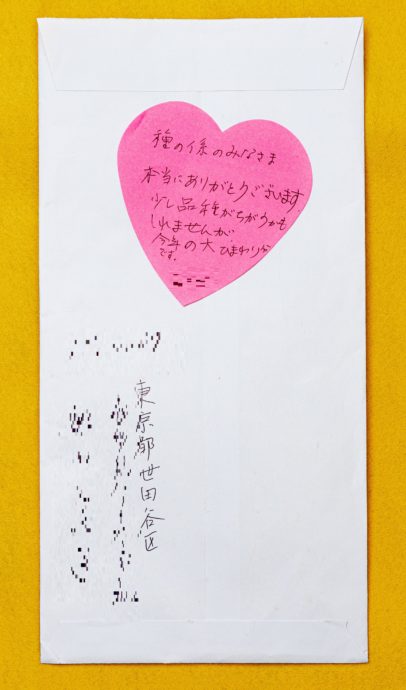 種の係のみなさま
本当にありがとうございます。
少し品種がちがうかも
しれませんが
今年の大ひまわりから
です。
東京都世田谷区